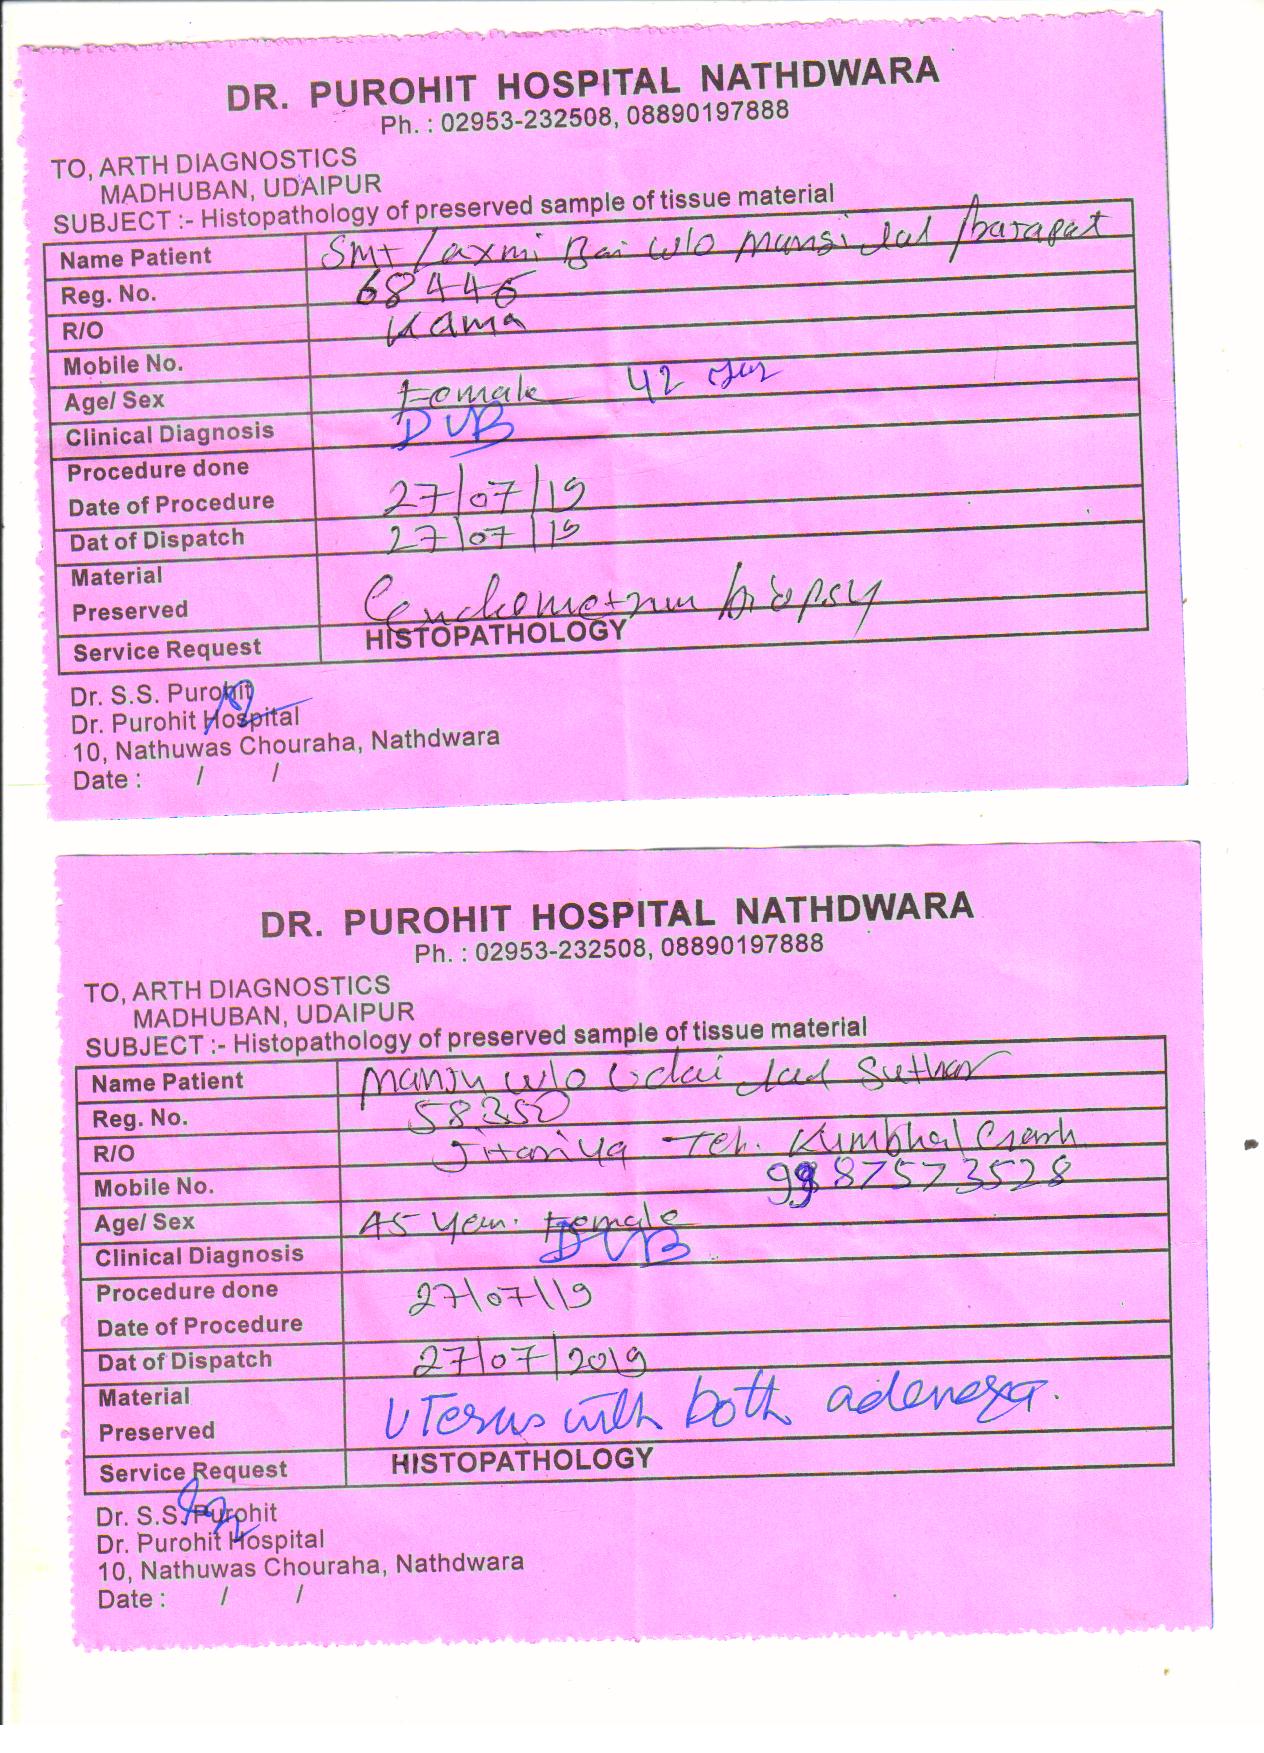 DR. PUROHIT HOSPITAL NATHDWARA
Ph. : 02953-232508, 08890197888
TO, ARTH DIAGNOSTICS
MADHUBAN, UDAIPUR
SUBJECT :- Histopathology of preserved sample of tissue material
Name Patient Smt Laxmi Bai w/o Mansi Lal
Reg. No. 68446
R/O Kama
Mobile No.
Age/ Sex Female 42 yer
Clinical Diagnosis DUB
Procedure done
Date of Procedure 27/07/19
Dat of Dispatch 27/07/19
Material
Preserved biopsy
Service Request HISTOPATHOLOGY
Dr. S.S. Purohit
Dr. Purohit Hospital
10, Nathuwas Chouraha, Nathdwara
Date : / /
DR. PUROHIT HOSPITAL NATHDWARA
Ph. : 02953-232508, 08890197888
TO, ARTH DIAGNOSTICS
MADHUBAN, UDAIPUR
SUBJECT :- Histopathology of preserved sample of tissue material
Name Patient Manju w/o Udai Lal Suthar
Reg. No. 58350
R/O Jitariya Teh. Kumbhal Grarh
Mobile No. 9987573528
Age/ Sex 45 Year. Female
Clinical Diagnosis DUB
Procedure done 27/07/19
Date of Procedure
Dat of Dispatch 27/07/2019
Material
Preserved Uterus with both adenexa.
Service Request HISTOPATHOLOGY
Dr. S.S. Purohit
Dr. Purohit Hospital
10, Nathuwas Chouraha, Nathdwara
Date : / /